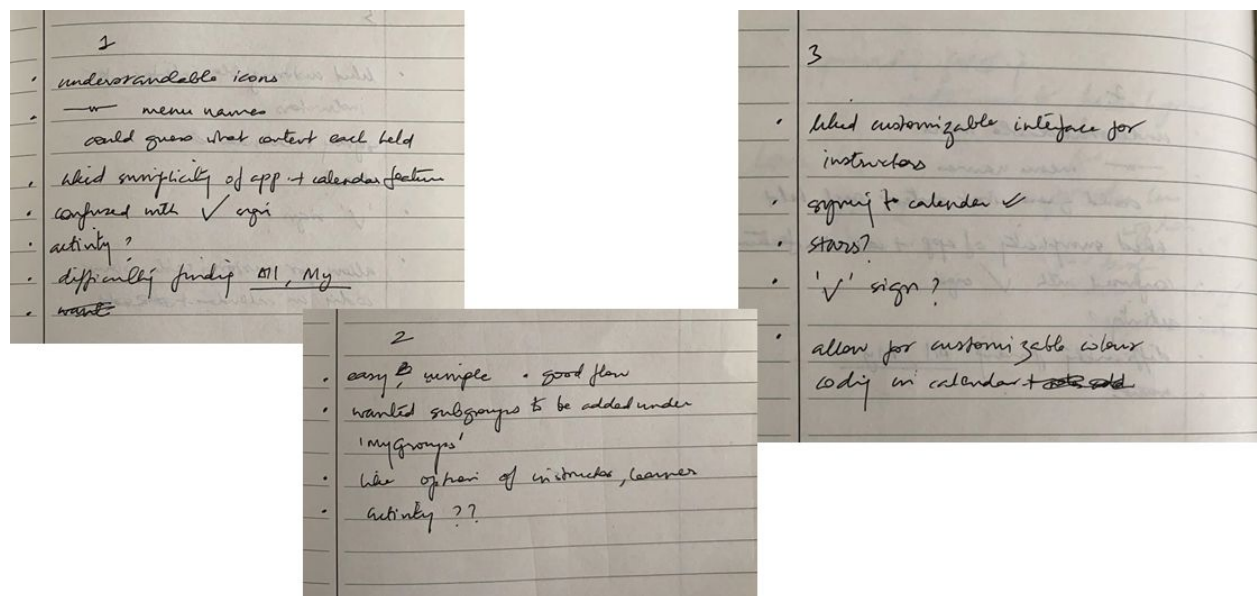 1
• understandable icons
• —"— menu names
could guess what content each held
• liked simplicity of app + calendar feature
• confused with ✓ sign
• activity?
• difficulty finding All, My
• want
2
• easy, simple • good flow
• wanted subgroups to be added under
'My Groups'
• like option of instructor, learner
• activity ??
3
• liked customizable interface for
instructors
• syncing to calendar ✓
• stars?
• '✓' sign?
• allow for customizable colour
coding in calendar +